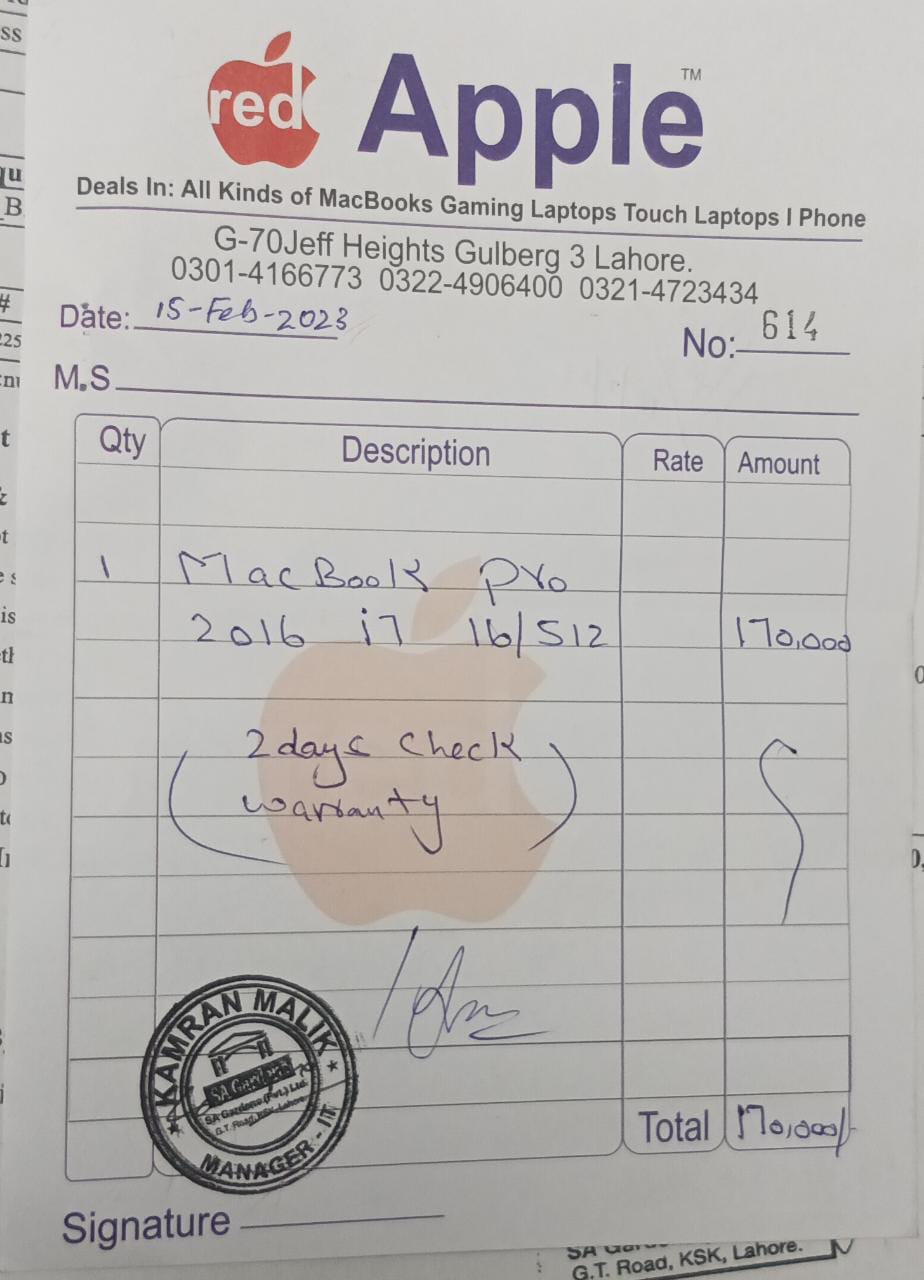 red Apple TM
Deals In: All Kinds of MacBooks Gaming Laptops Touch Laptops I Phone
G-70Jeff Heights Gulberg 3 Lahore.
0301-4166773 0322-4906400 0321-4723434
Date: 15-Feb-2023
No: 614
M.S
Qty Description Rate Amount
1 MacBook Pro
2016 i7 16/512 170,000
(2 days check
warranty)
KAMRAN MALIK
SA Gardens
SA Gardens (Pvt.) Ltd.
G.T. Road, KSK, Lahore.
MANAGER - IT
Total 170,000/-
Signature
G.T. Road, KSK, Lahore.